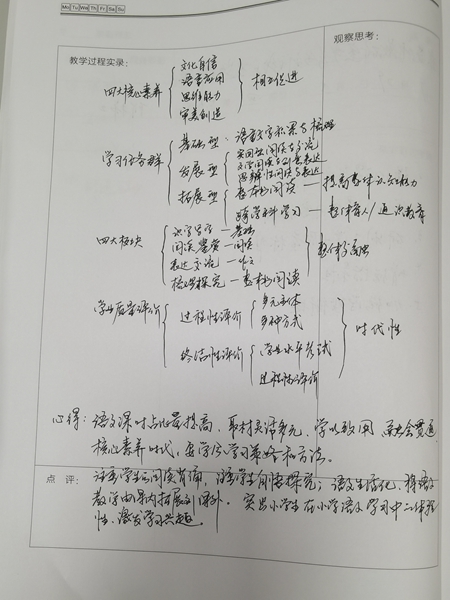 Mo Tu We Th Fr Sa Su
观察思考：
教学过程实录：
四大核心素养
文化自信
语言应用
思维能力
审美创造
相互促进
学习任务群
基础型：语言文字积累与梳理
发展型
实用性阅读与交流
文学阅读与创意表达
思辨性阅读与表达
拓展型
整本书阅读 — 提高整体认知能力
跨学科学习 — 整体育人/通识教育
四大板块
识字写字 — 基础
阅读鉴赏 — 阅读
表达交流 —
梳理探究 — 整本书阅读
整体
学业质量评价
过程性评价
多元主体
多种方式
终结性评价
学业水平考试
过程性评价
时代性
心得：语文课时占比最提高，取材灵活多元，学以致用，融会贯通
核心素养时代，要学习学习策略和方法。
点 评：
注重学生阅读背诵，注重学生自主探究；语文生活化，将语文
教学由课内拓展到课外。突出小学生在小学语文学习中
性，激发学习兴趣。